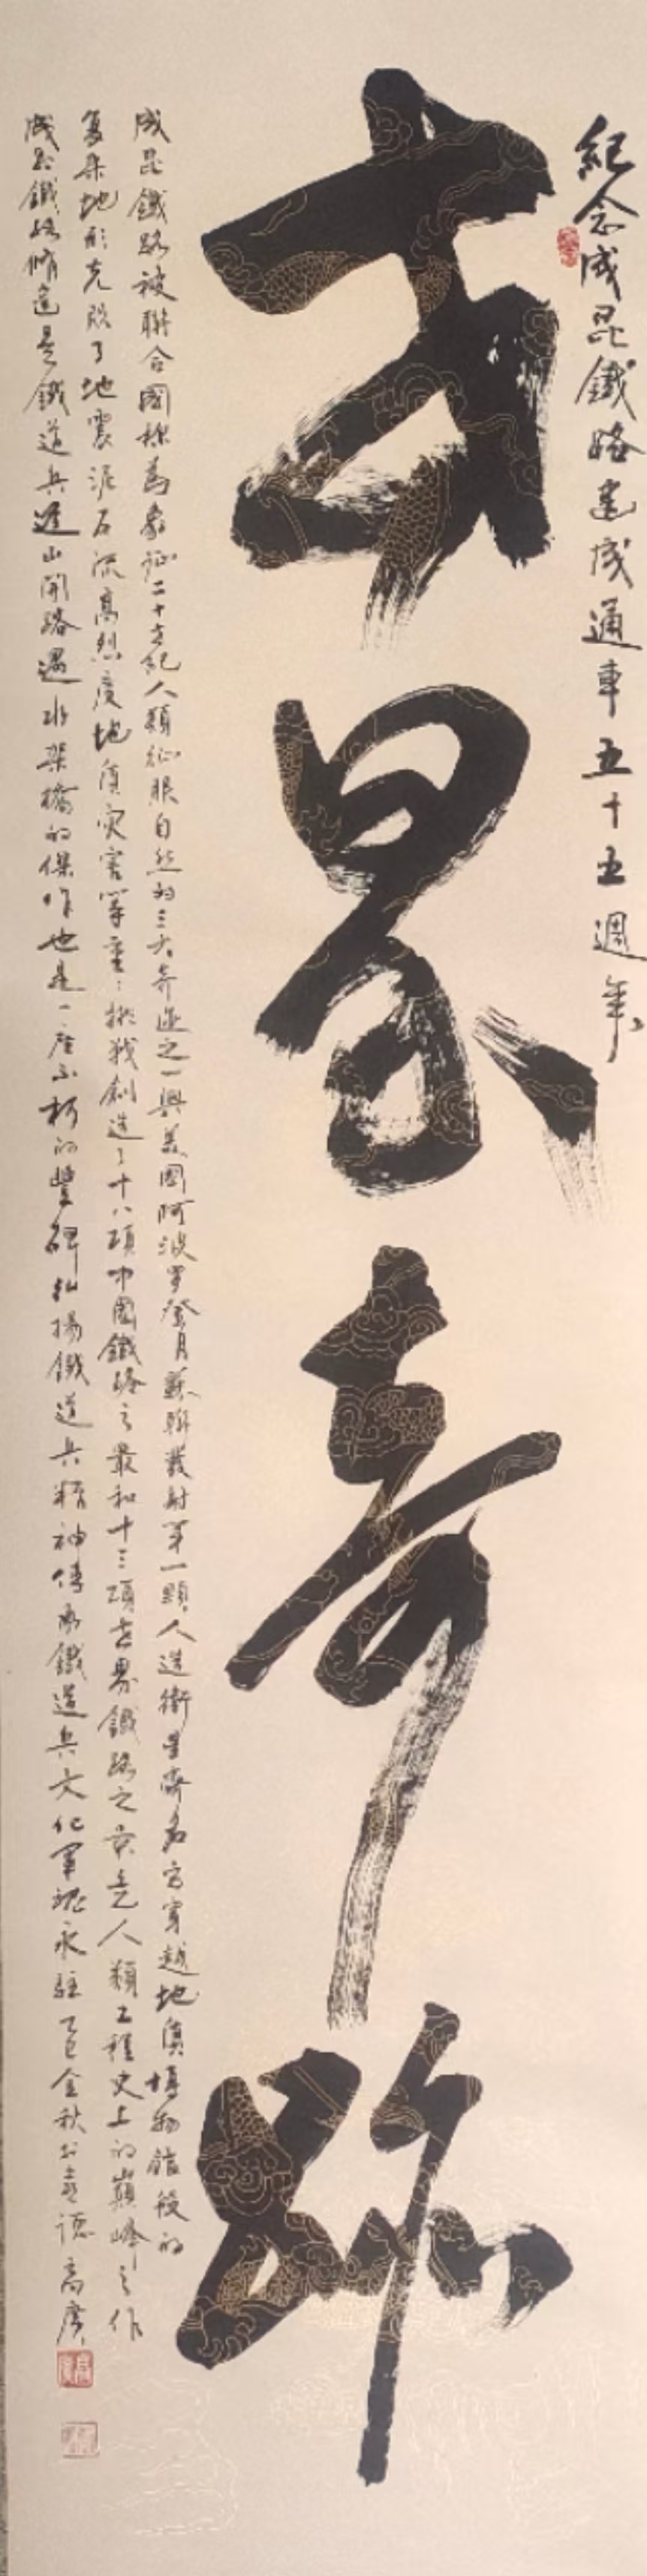 紀念成昆鐵路建成通車五十五週年
世界奇跡
成昆鐵路被聯合國称為象征二十世紀人類征服自然的三大奇迹之一與美國阿波罗登月蘇聯發射第一顆人造衛星齊名它穿越地質博物館般的
复杂地形克服了地震泥石流高烈度地質灾害等重重挑戰創造了十八項中國鐵路之最和十三項世界鐵路之最是人類工程史上的巔峰之作
成昆鐵路脩建是鐵道兵逢山開路遇水架橋的傑作也是一座不朽的豐碑弘揚鐵道兵精神傳承鐵道兵文化軍魂永駐乙巳金秋於德高廣